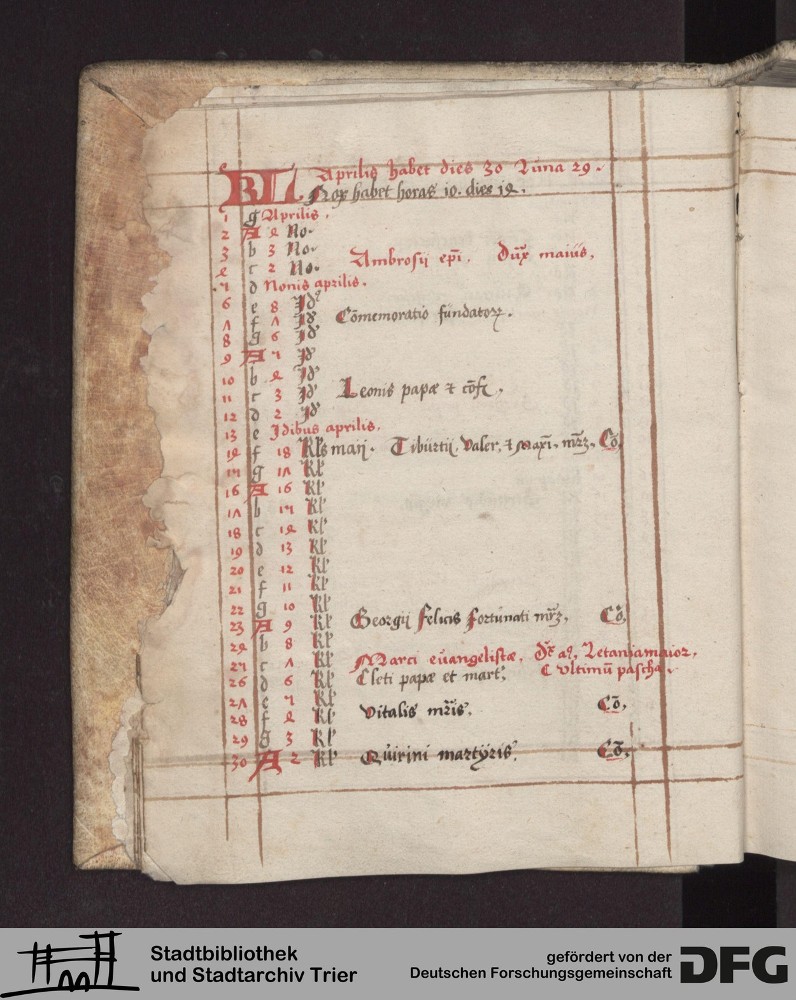 KL Aprilis habet dies 30 Luna 29.
Nox habet horas 10. dies 14.
1 g Aprilis.
2 A 4 No.
3 b 3 No.
4 c 2 No. Ambrosij epi. Dux maius.
5 d Nonis aprilis.
6 e 8 Id
7 f 7 Id Comemoratio fundator.
8 g 6 Id
9 A 5 Id
10 b 4 Id
11 c 3 Id Leonis papæ et cof.
12 d 2 Id
13 e Idibus aprilis.
14 f 18 Kls maij. Tiburtij, Valer, et Maxi. mrz. Co.
15 g 17 Kl
16 A 16 Kl
17 b 15 Kl
18 c 14 Kl
19 d 13 Kl
20 e 12 Kl
21 f 11 Kl
22 g 10 Kl
23 A 9 Kl Georgij Felicis Fortunati mrz. Co.
24 b 8 Kl
25 c 7 Kl Marci euangelistæ. Letania maior.
26 d 6 Kl Cleti papæ et mart. Vltimu pascha.
27 e 5 Kl
28 f 4 Kl Vitalis mris. Co.
29 g 3 Kl
30 A 2 Kl Quirini martyris. Co.
Stadtbibliothek
und Stadtarchiv Trier
gefördert von der
Deutschen Forschungsgemeinschaft
DFG